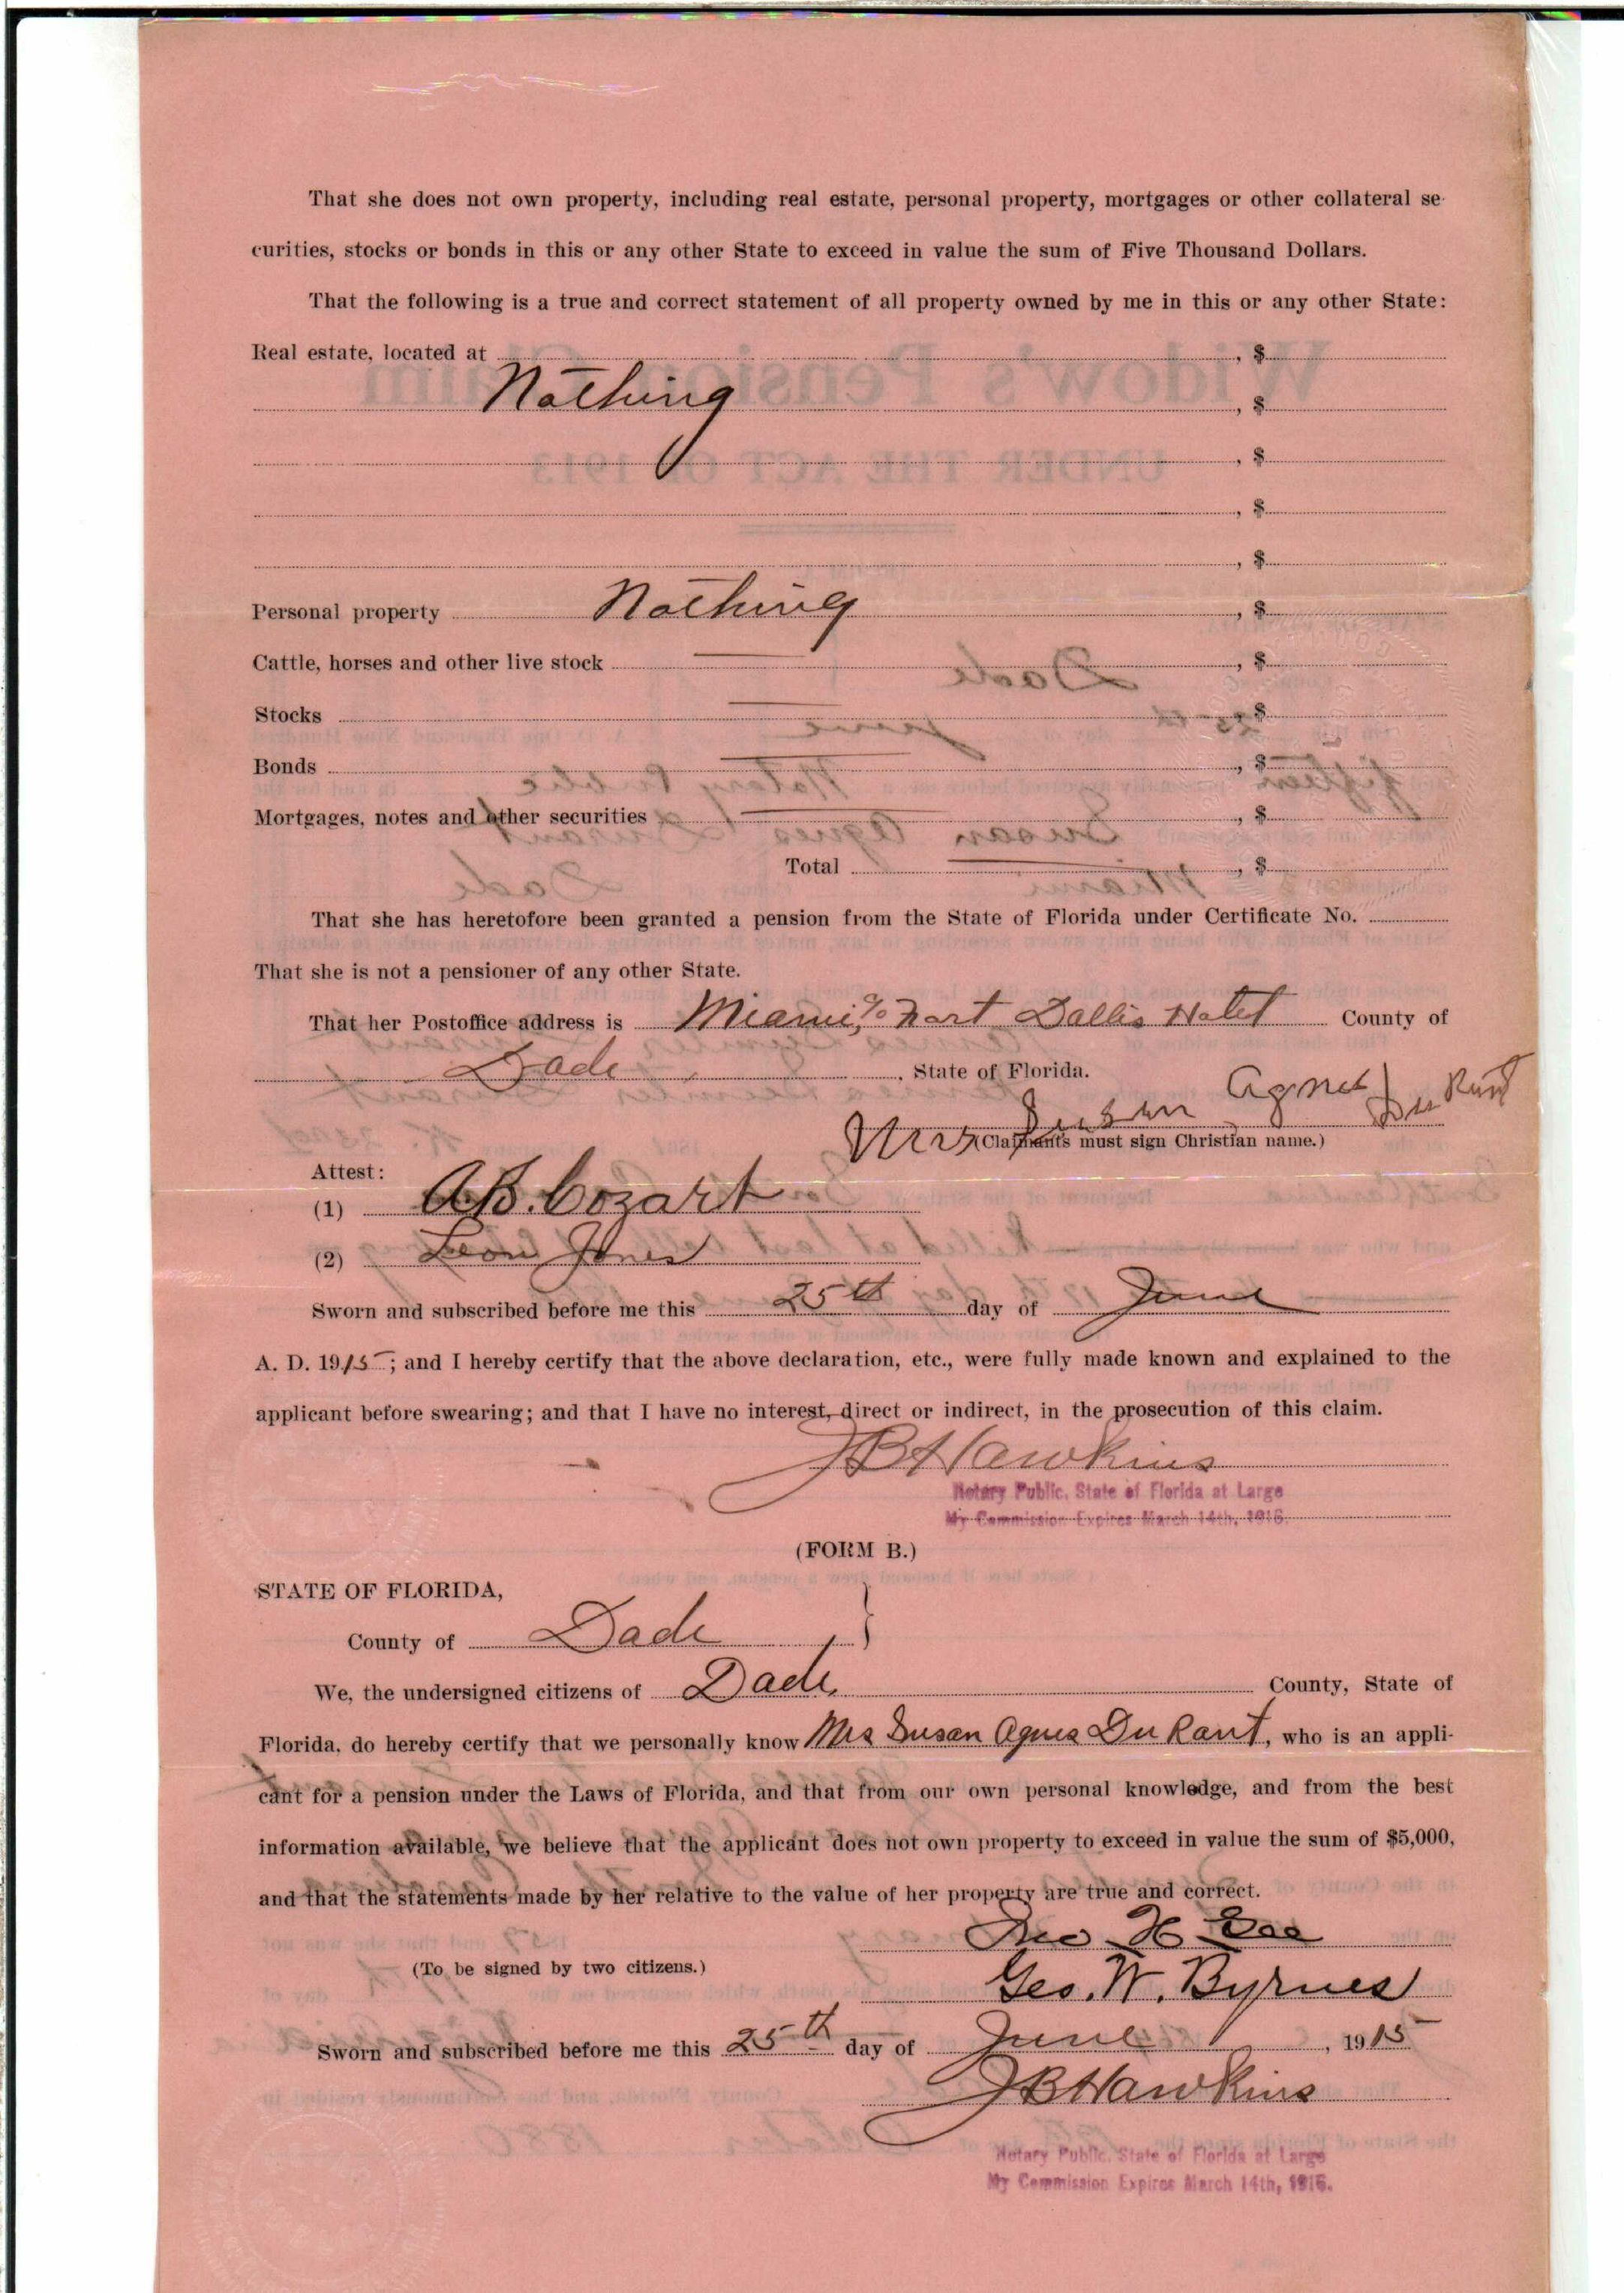 That she does not own property, including real estate, personal property, mortgages or other collateral se-
curities, stocks or bonds in this or any other State to exceed in value the sum of Five Thousand Dollars.
That the following is a true and correct statement of all property owned by me in this or any other State:
Real estate, located at , $
Nothing , $
, $
, $
, $
Personal property Nothing , $
Cattle, horses and other live stock , $
Stocks , $
Bonds , $
Mortgages, notes and other securities , $
Total , $
That she has heretofore been granted a pension from the State of Florida under Certificate No.
That she is not a pensioner of any other State.
That her Postoffice address is Miami, % Fort Dallis Hotel County of
Dade , State of Florida.
Mrs Susan Agnes Du Rant
(Claimants must sign Christian name.)
Attest:
(1) A.B. Cozart
(2) Leon Jones
Sworn and subscribed before me this 25th day of June
A. D. 1915; and I hereby certify that the above declaration, etc., were fully made known and explained to the
applicant before swearing; and that I have no interest, direct or indirect, in the prosecution of this claim.
JB Hawkins
Notary Public, State of Florida at Large
My Commission Expires March 14th, 1916.
(FORM B.)
STATE OF FLORIDA,
County of Dade }
We, the undersigned citizens of Dade County, State of
Florida, do hereby certify that we personally know Mrs Susan Agnes Du Rant, who is an appli-
cant for a pension under the Laws of Florida, and that from our own personal knowledge, and from the best
information available, we believe that the applicant does not own property to exceed in value the sum of $5,000,
and that the statements made by her relative to the value of her property are true and correct.
H
(To be signed by two citizens.)
Geo. W. Byrnes
Sworn and subscribed before me this 25th day of June , 1915
JB Hawkins
Notary Public, State of Florida at Large
My Commission Expires March 14th, 1916.